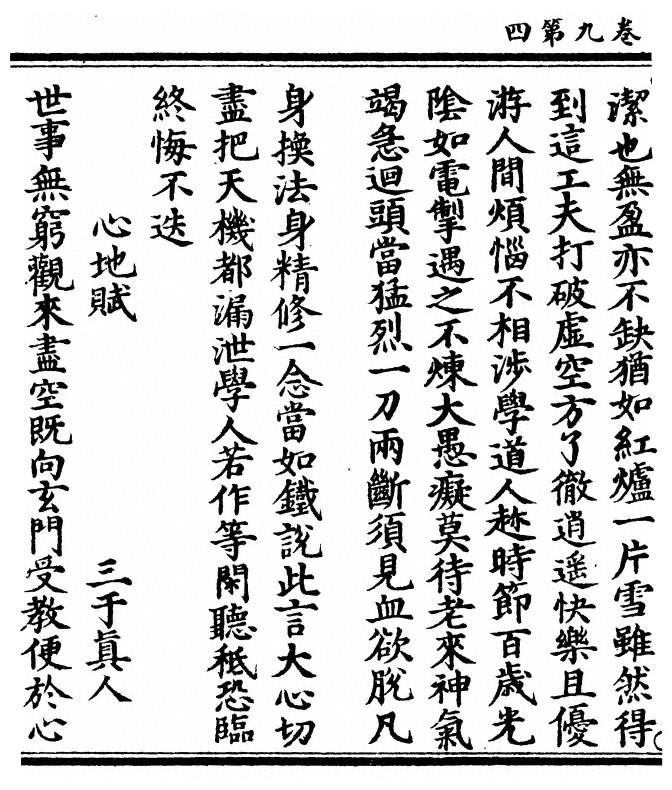 卷九第四
潔也無盈亦不缺猶如紅爐一片雪雖然得
到這工夫打破虛空方了徹逍遥快樂且優
游人間煩惱不相涉學道人趂時節百歲光
陰如電掣遇之不煉大愚癡莫待老來神氣
竭急迴頭當猛烈一刀兩斷須見血欲脫凡
身換法身精修一念當如鐵說此言大心切
盡把天機都漏泄學人若作等閑聽秪恐臨
終悔不迭
心地賦 三于真人
世事無窮觀來盡空既向玄門受教便於心